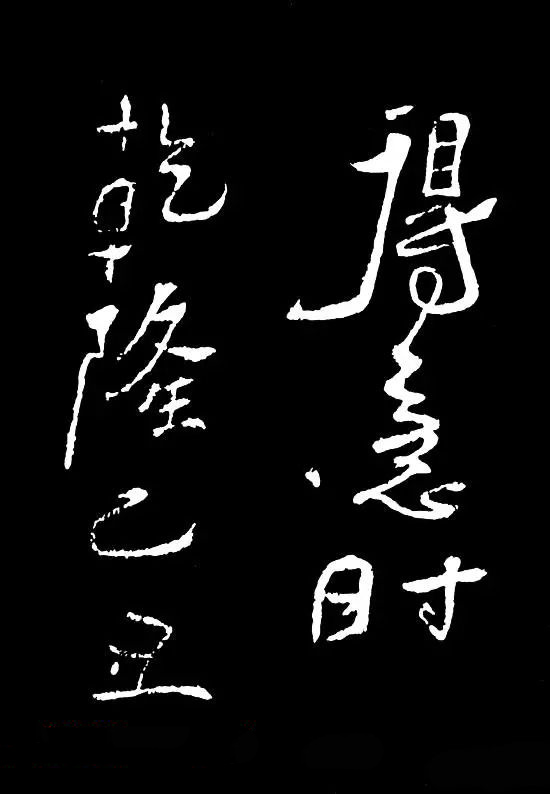 得意时
乾隆己丑